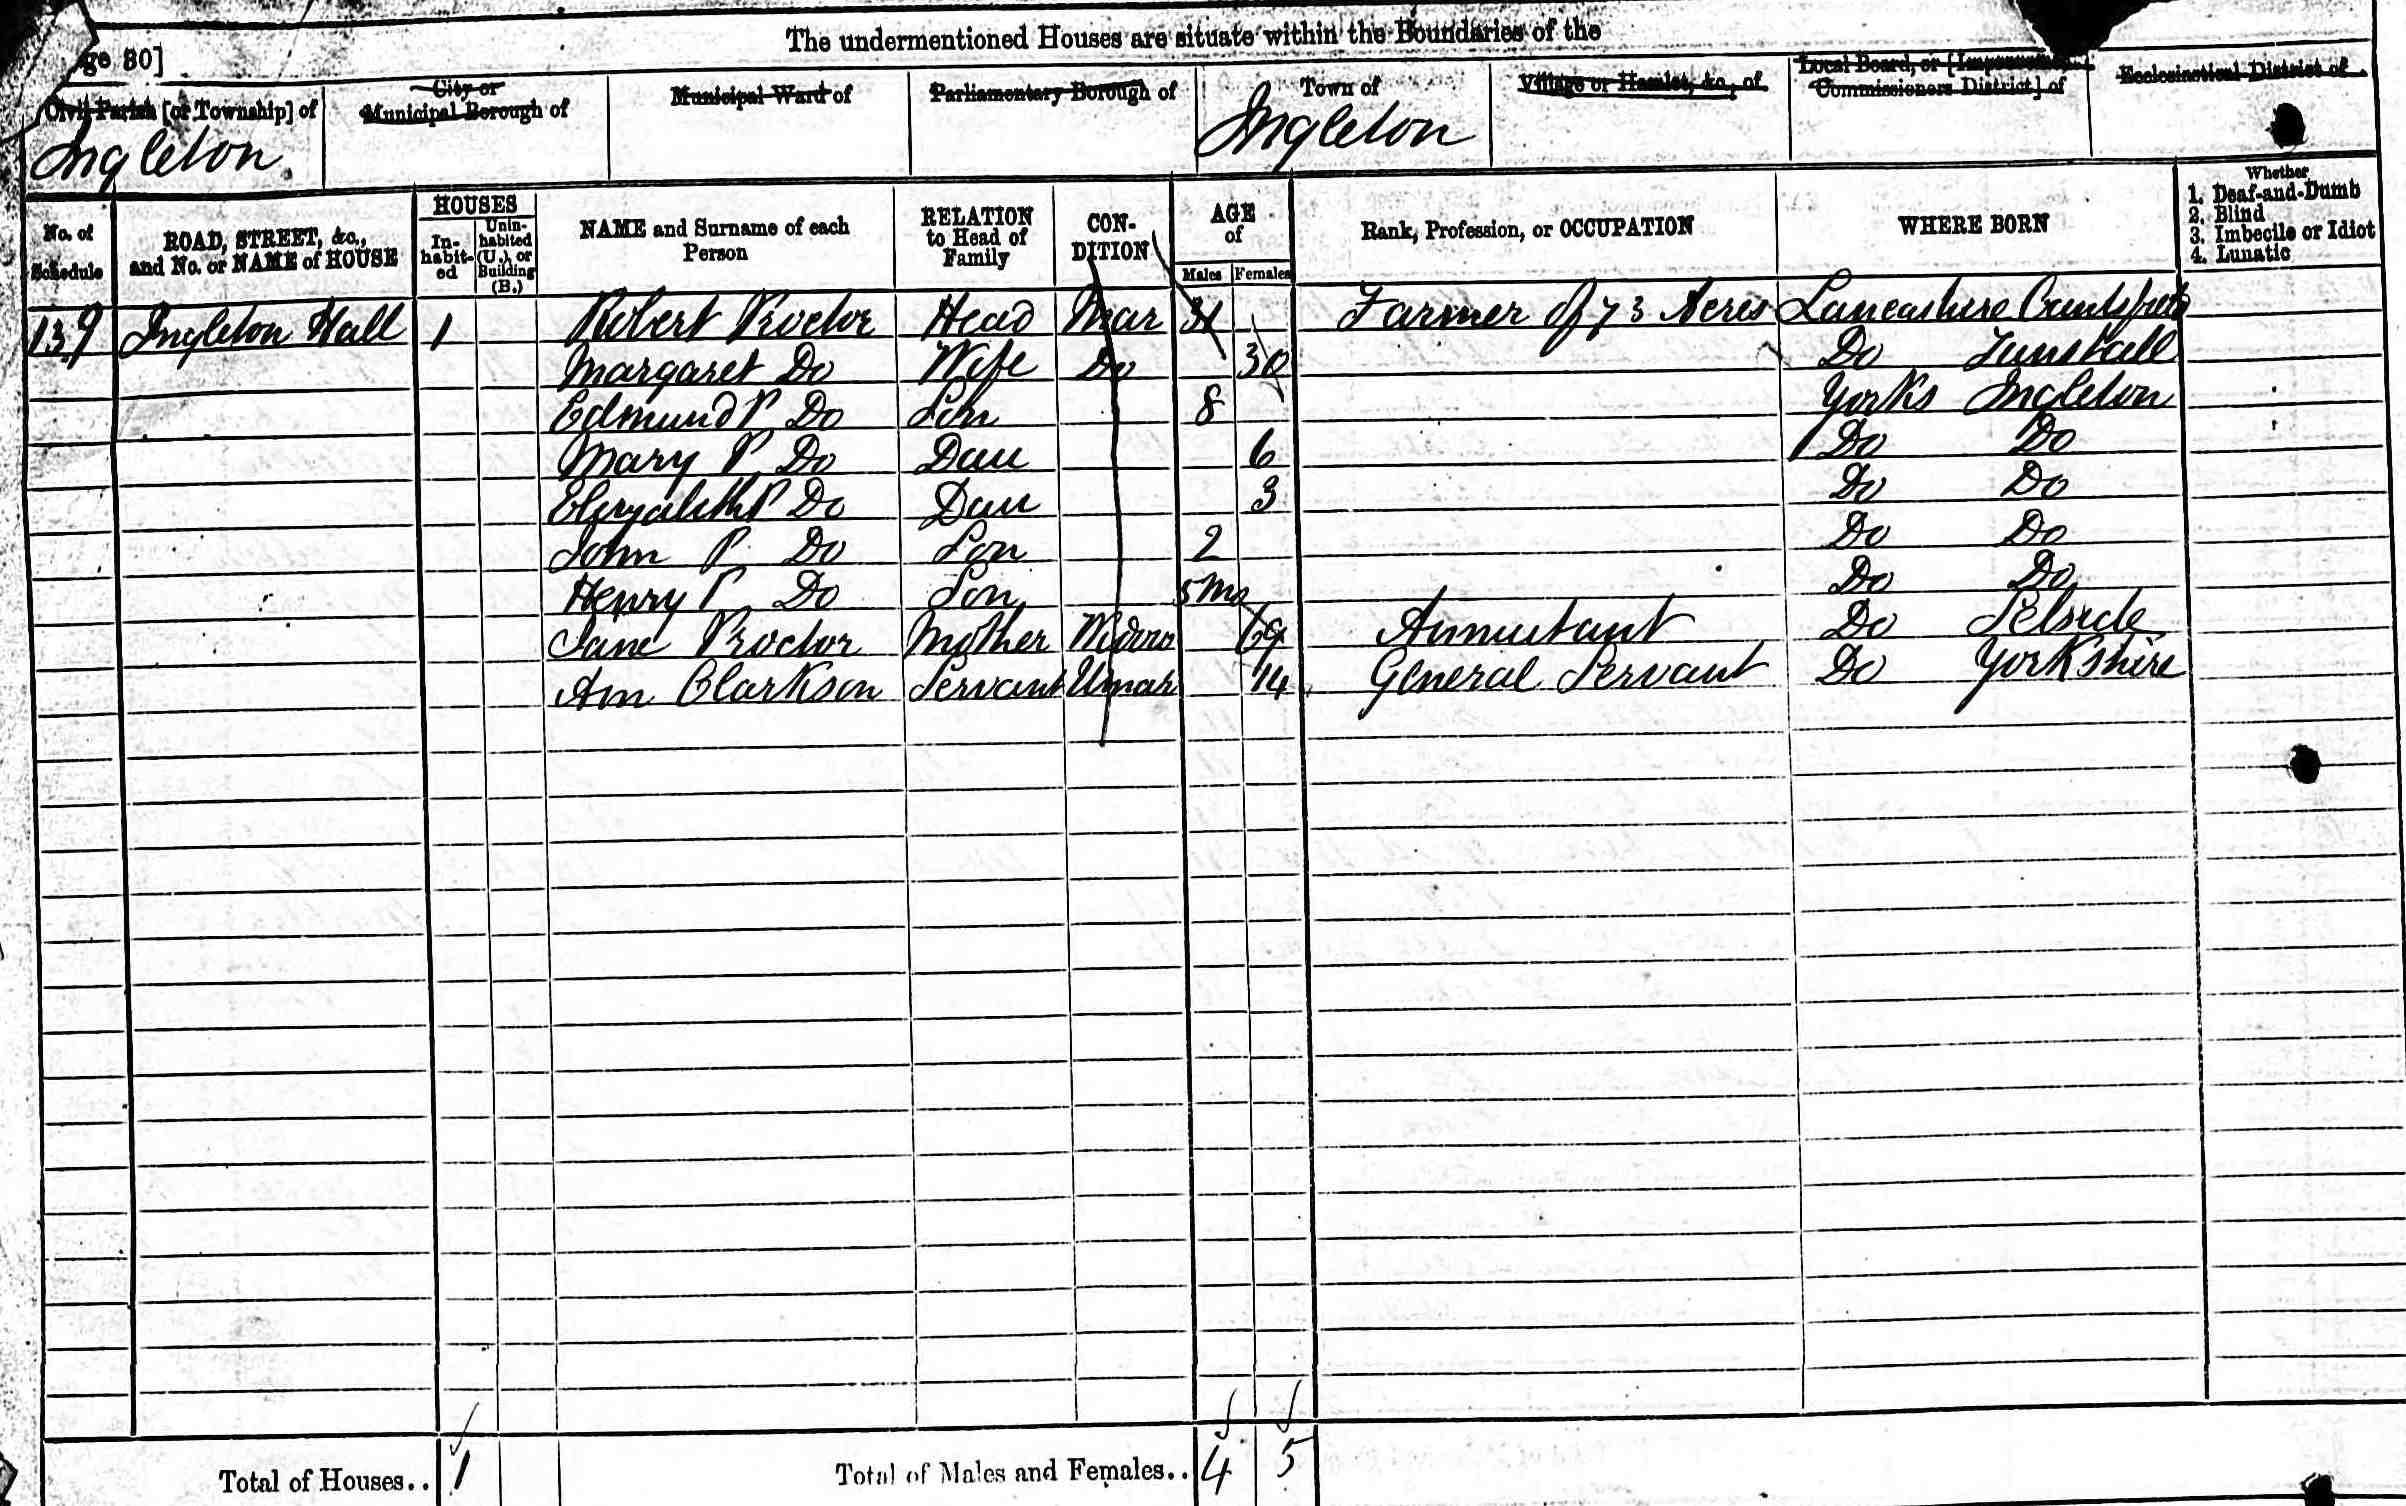 ge 80]
The undermentioned Houses are situate within the Boundaries of the
Civil Parish [or Township] of
City or
Municipal Borough of
Municipal Ward of
Parliamentary Borough of
Town of
Village or Hamlet, &c., of
Local Board, or [Improvement
Commissioners District] of
Ecclesiastical District of
Ingleton
Ingleton
No. of
Schedule
ROAD, STREET, &c.,
and No. or NAME of HOUSE
HOUSES
In-
habit-
ed
Unin-
habited
(U.), or
Building
(B.)
NAME and Surname of each
Person
RELATION
to Head of
Family
CON-
DITION
AGE
of
Males Females
Rank, Profession, or OCCUPATION
WHERE BORN
Whether
1. Deaf-and-Dumb
2. Blind
3. Imbecile or Idiot
4. Lunatic
139 Ingleton Hall 1 Robert Proctor Head Mar 31 Farmer of 73 Acres Lancashire
Margaret Do Wife Do 30 Do Tunstall
Edmund P Do Son 8 Yorks Ingleton
Mary P Do Dau 6 Do Do
Elizabeth P Do Dau 3 Do Do
John P Do Son 2 Do Do
Henry P Do Son 5 Mo Do Do
Jane Proctor Mother Widow 69 Annuitant Do Selside
Ann Clarkson Servant Unmar 14 General Servant Do Yorkshire
Total of Houses.. 1 Total of Males and Females.. 4 5